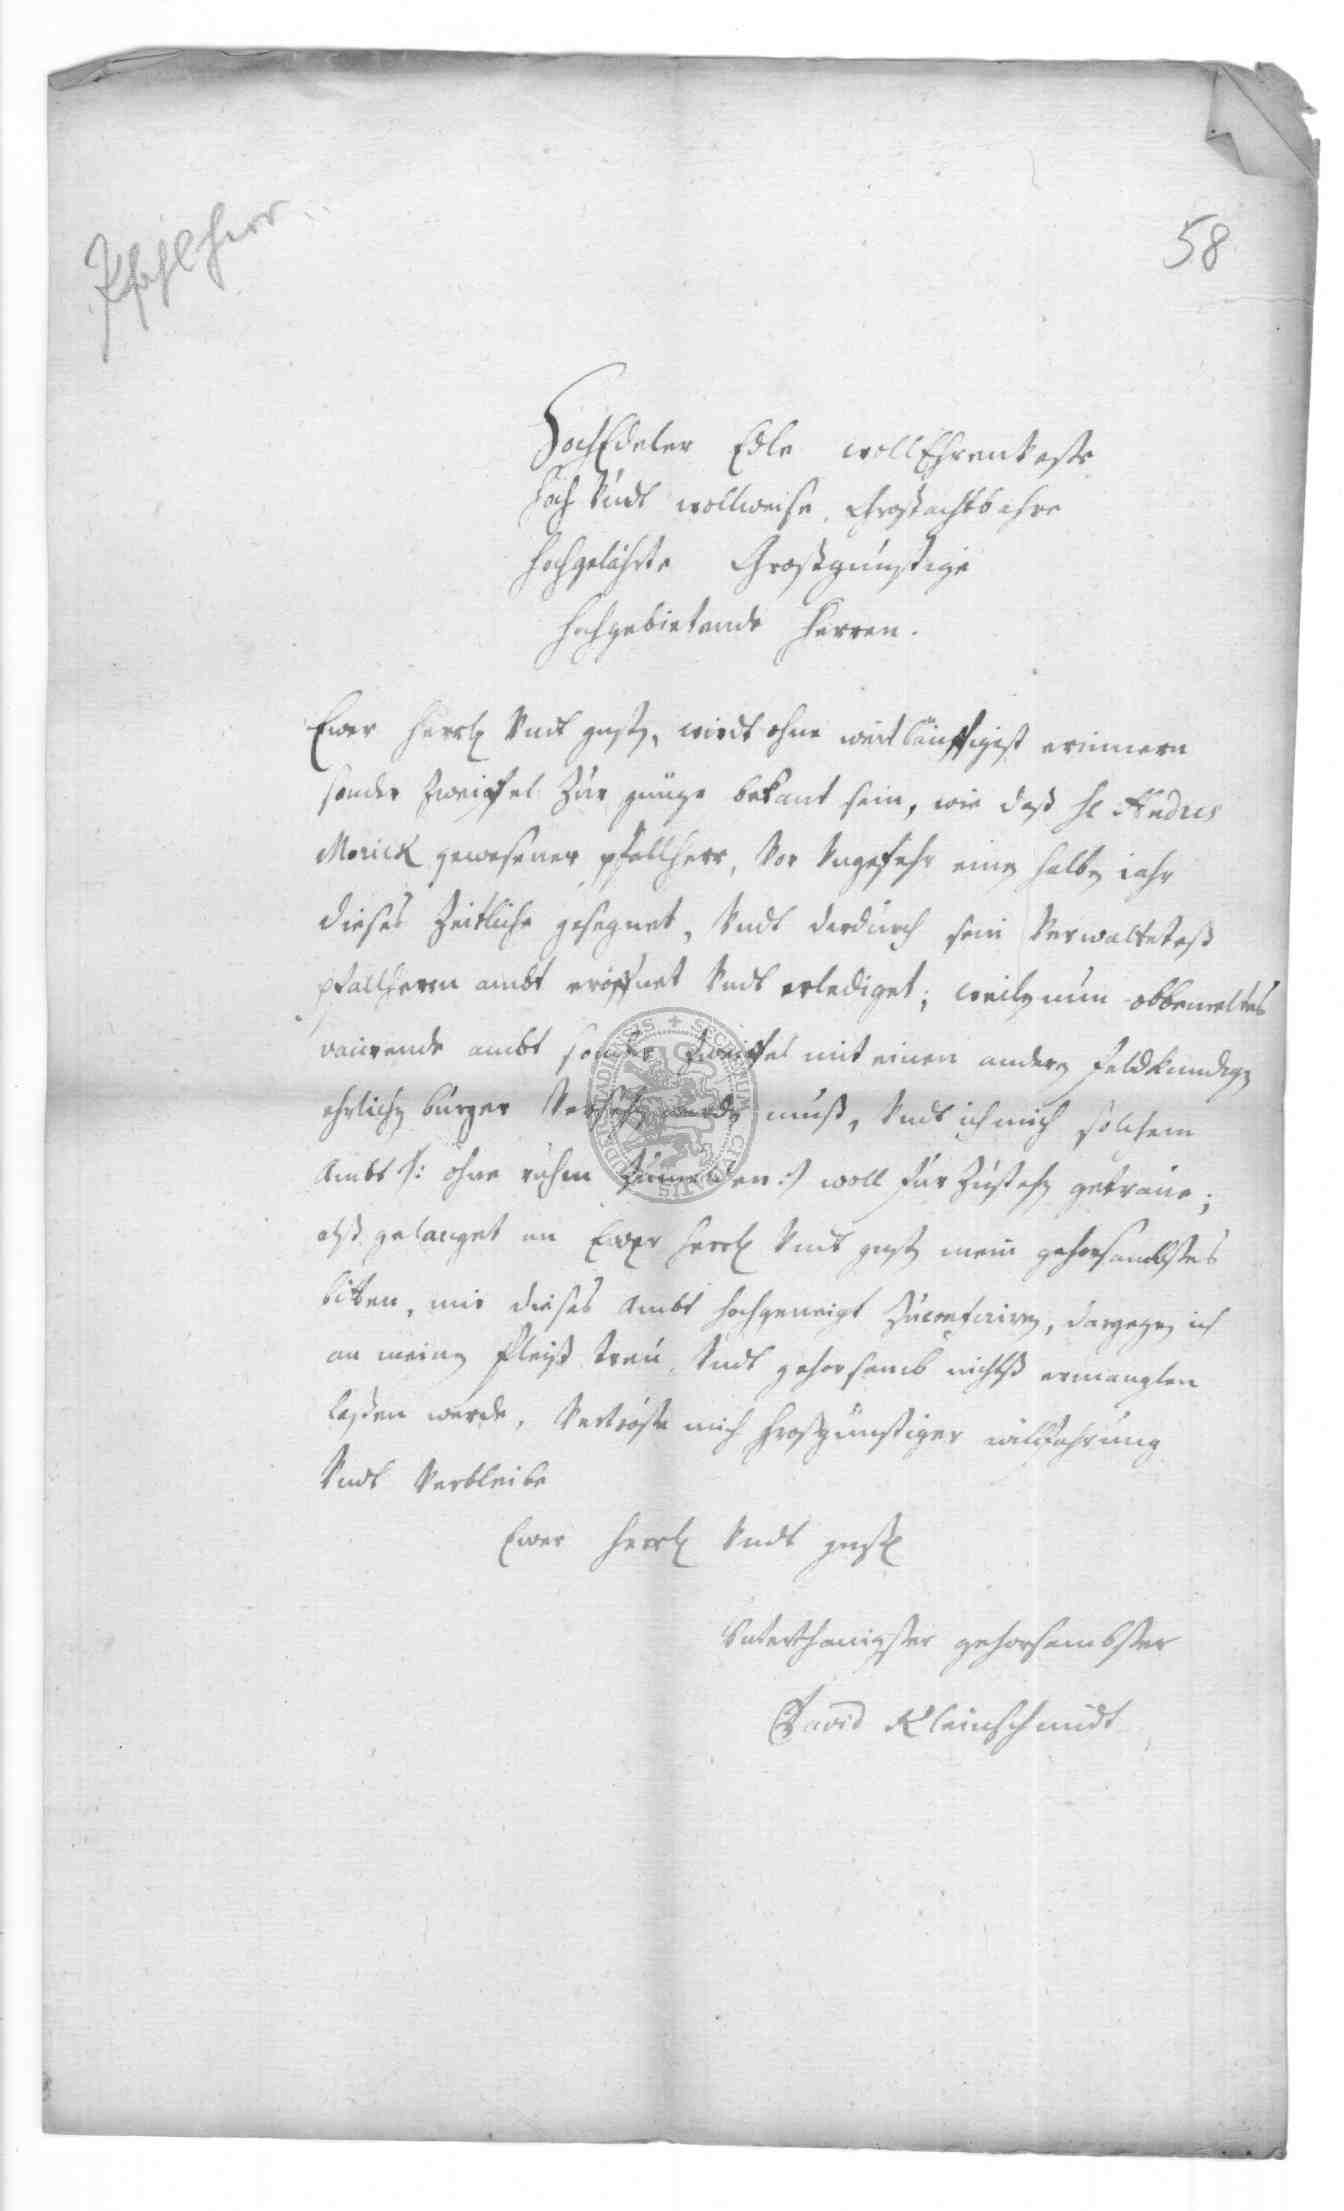 Pfahlherr
58
HochEdeler Edle wollEhrenveste
Hoch Vndt wollweise, Großachtbahre
Hochgelährte Großgünstige
Hochgebietende Herren.
Ewer Herrl Vndt gnst, wirdt ohne weitläuffigist erinnern
sonder Zweiffel Zur gnüge bekant sein, wie daß H Andres
Morick gewesener pfallherr, Vor Vngefehr einen halben iahr
dieses Zeitliche gesegnet, Vndt dardurch sein Verwaltetes
pfallherrn ambt eröffnet Vndt erlediget; weilen nun obbemeltes
vacirende ambt sonder Zweiffel mit einen andern feldkundigen
ehrlichen burger Versehen werden muß, Vndt ich mich solchem
Ambt /: ohne ruhm Zumelden :/ woll für Zustehen getraue;
alß gelanget an Ewer Herrl Vndt gnst mein gehorsambstes
bitten, mir dieses Ambt hochgeneigt Zuconferiren, dargegen ich
an meinen fleiß treu Vndt gehorsamb nichtß ermanglen
laßen werde, Vertröste mich großgünstiger willfahrung
Vndt Verbleibe
Ewer Herrl Vndt gnst
Vnterthänigster gehorsambster
David Kleinschmidt